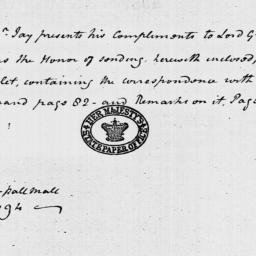 r. Jay presents his Compliments to Lord G
s the Honor of sending, herewith enclosed,
let, containing the correspondence with
and page 52 - and Remarks on it. Page
HER MAJESTY'S
STATE PAPER OFFICE
Pall Mall
94